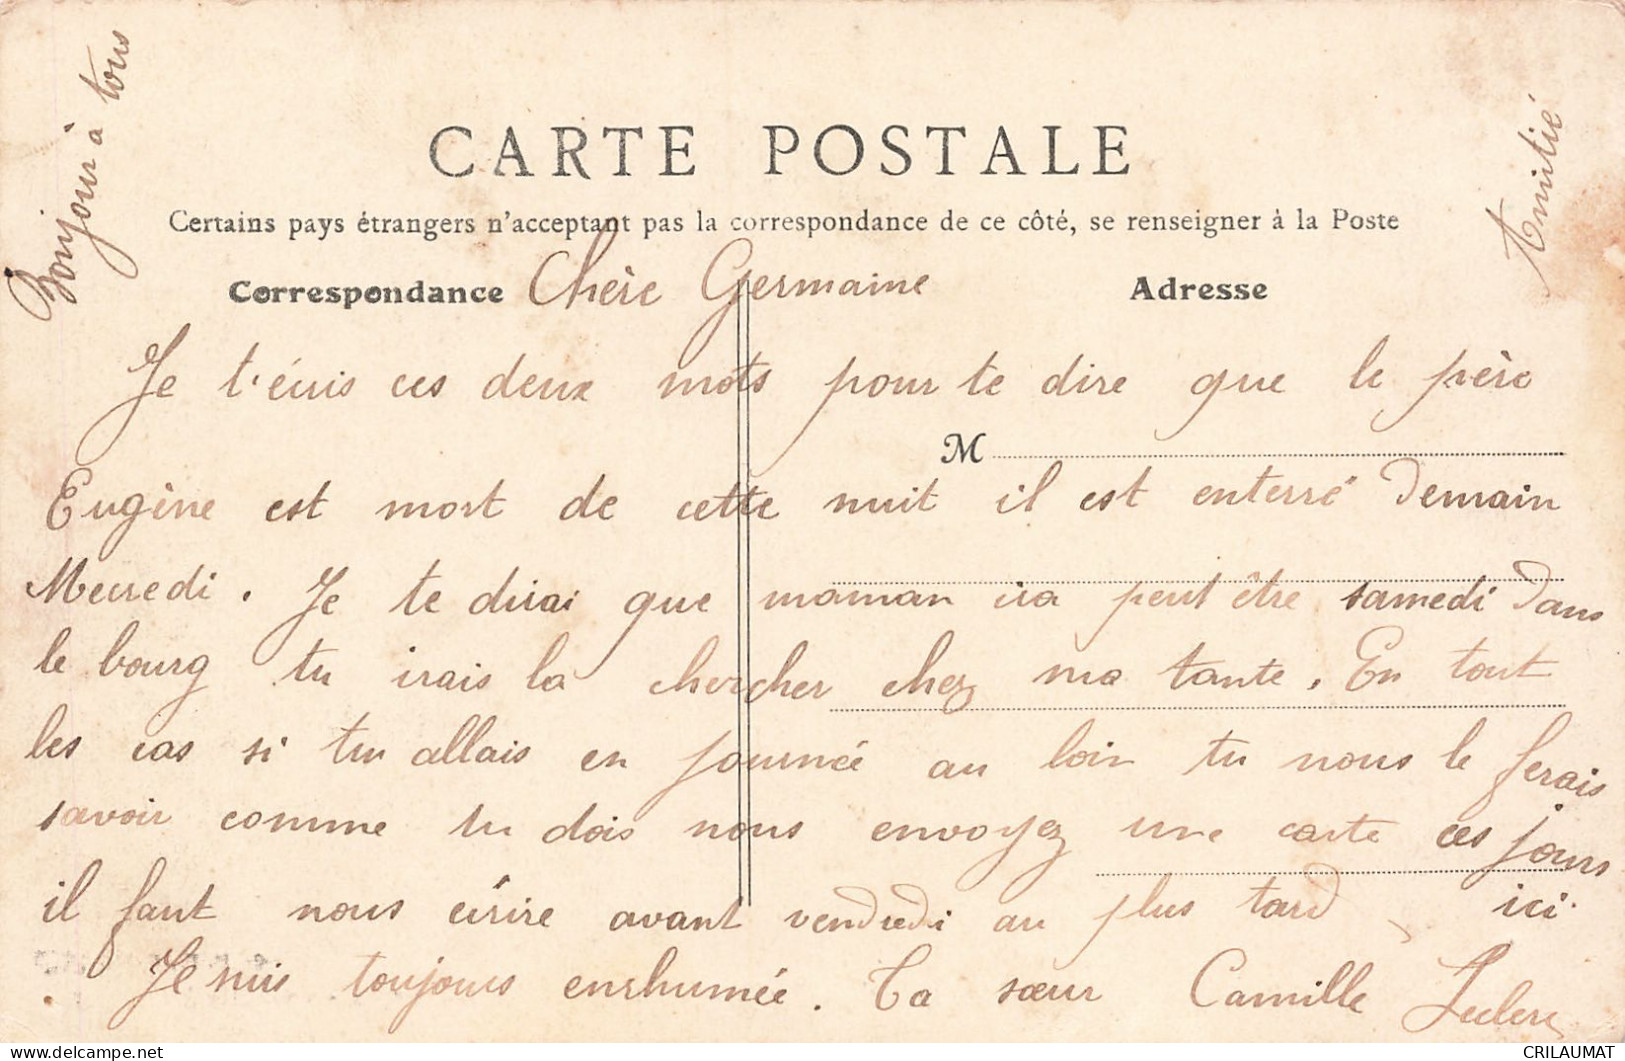 Bonjour à tous
Amitié
CARTE POSTALE
Certains pays étrangers n'acceptent pas la correspondance de ce côté, se renseigner à la Poste
Correspondance Chère Germaine Adresse
Je t'écris ces deux mots pour te dire que le père
M
Eugène est mort de cette nuit il est enterré Demain
Mecredi. Je te dirai que maman ira peut être samedi Dans
le bourg tu irais la chercher chez ma tante. En tout
les cas si tu allais en journée au loin tu nous le ferais
savoir comme tu dois nous envoyez une carte ces jours
il faut nous écrire avant vendredi au plus tard, ici.
Je suis toujours enrhumée. Ta sœur Camille Leclerc
CRILAUMAT